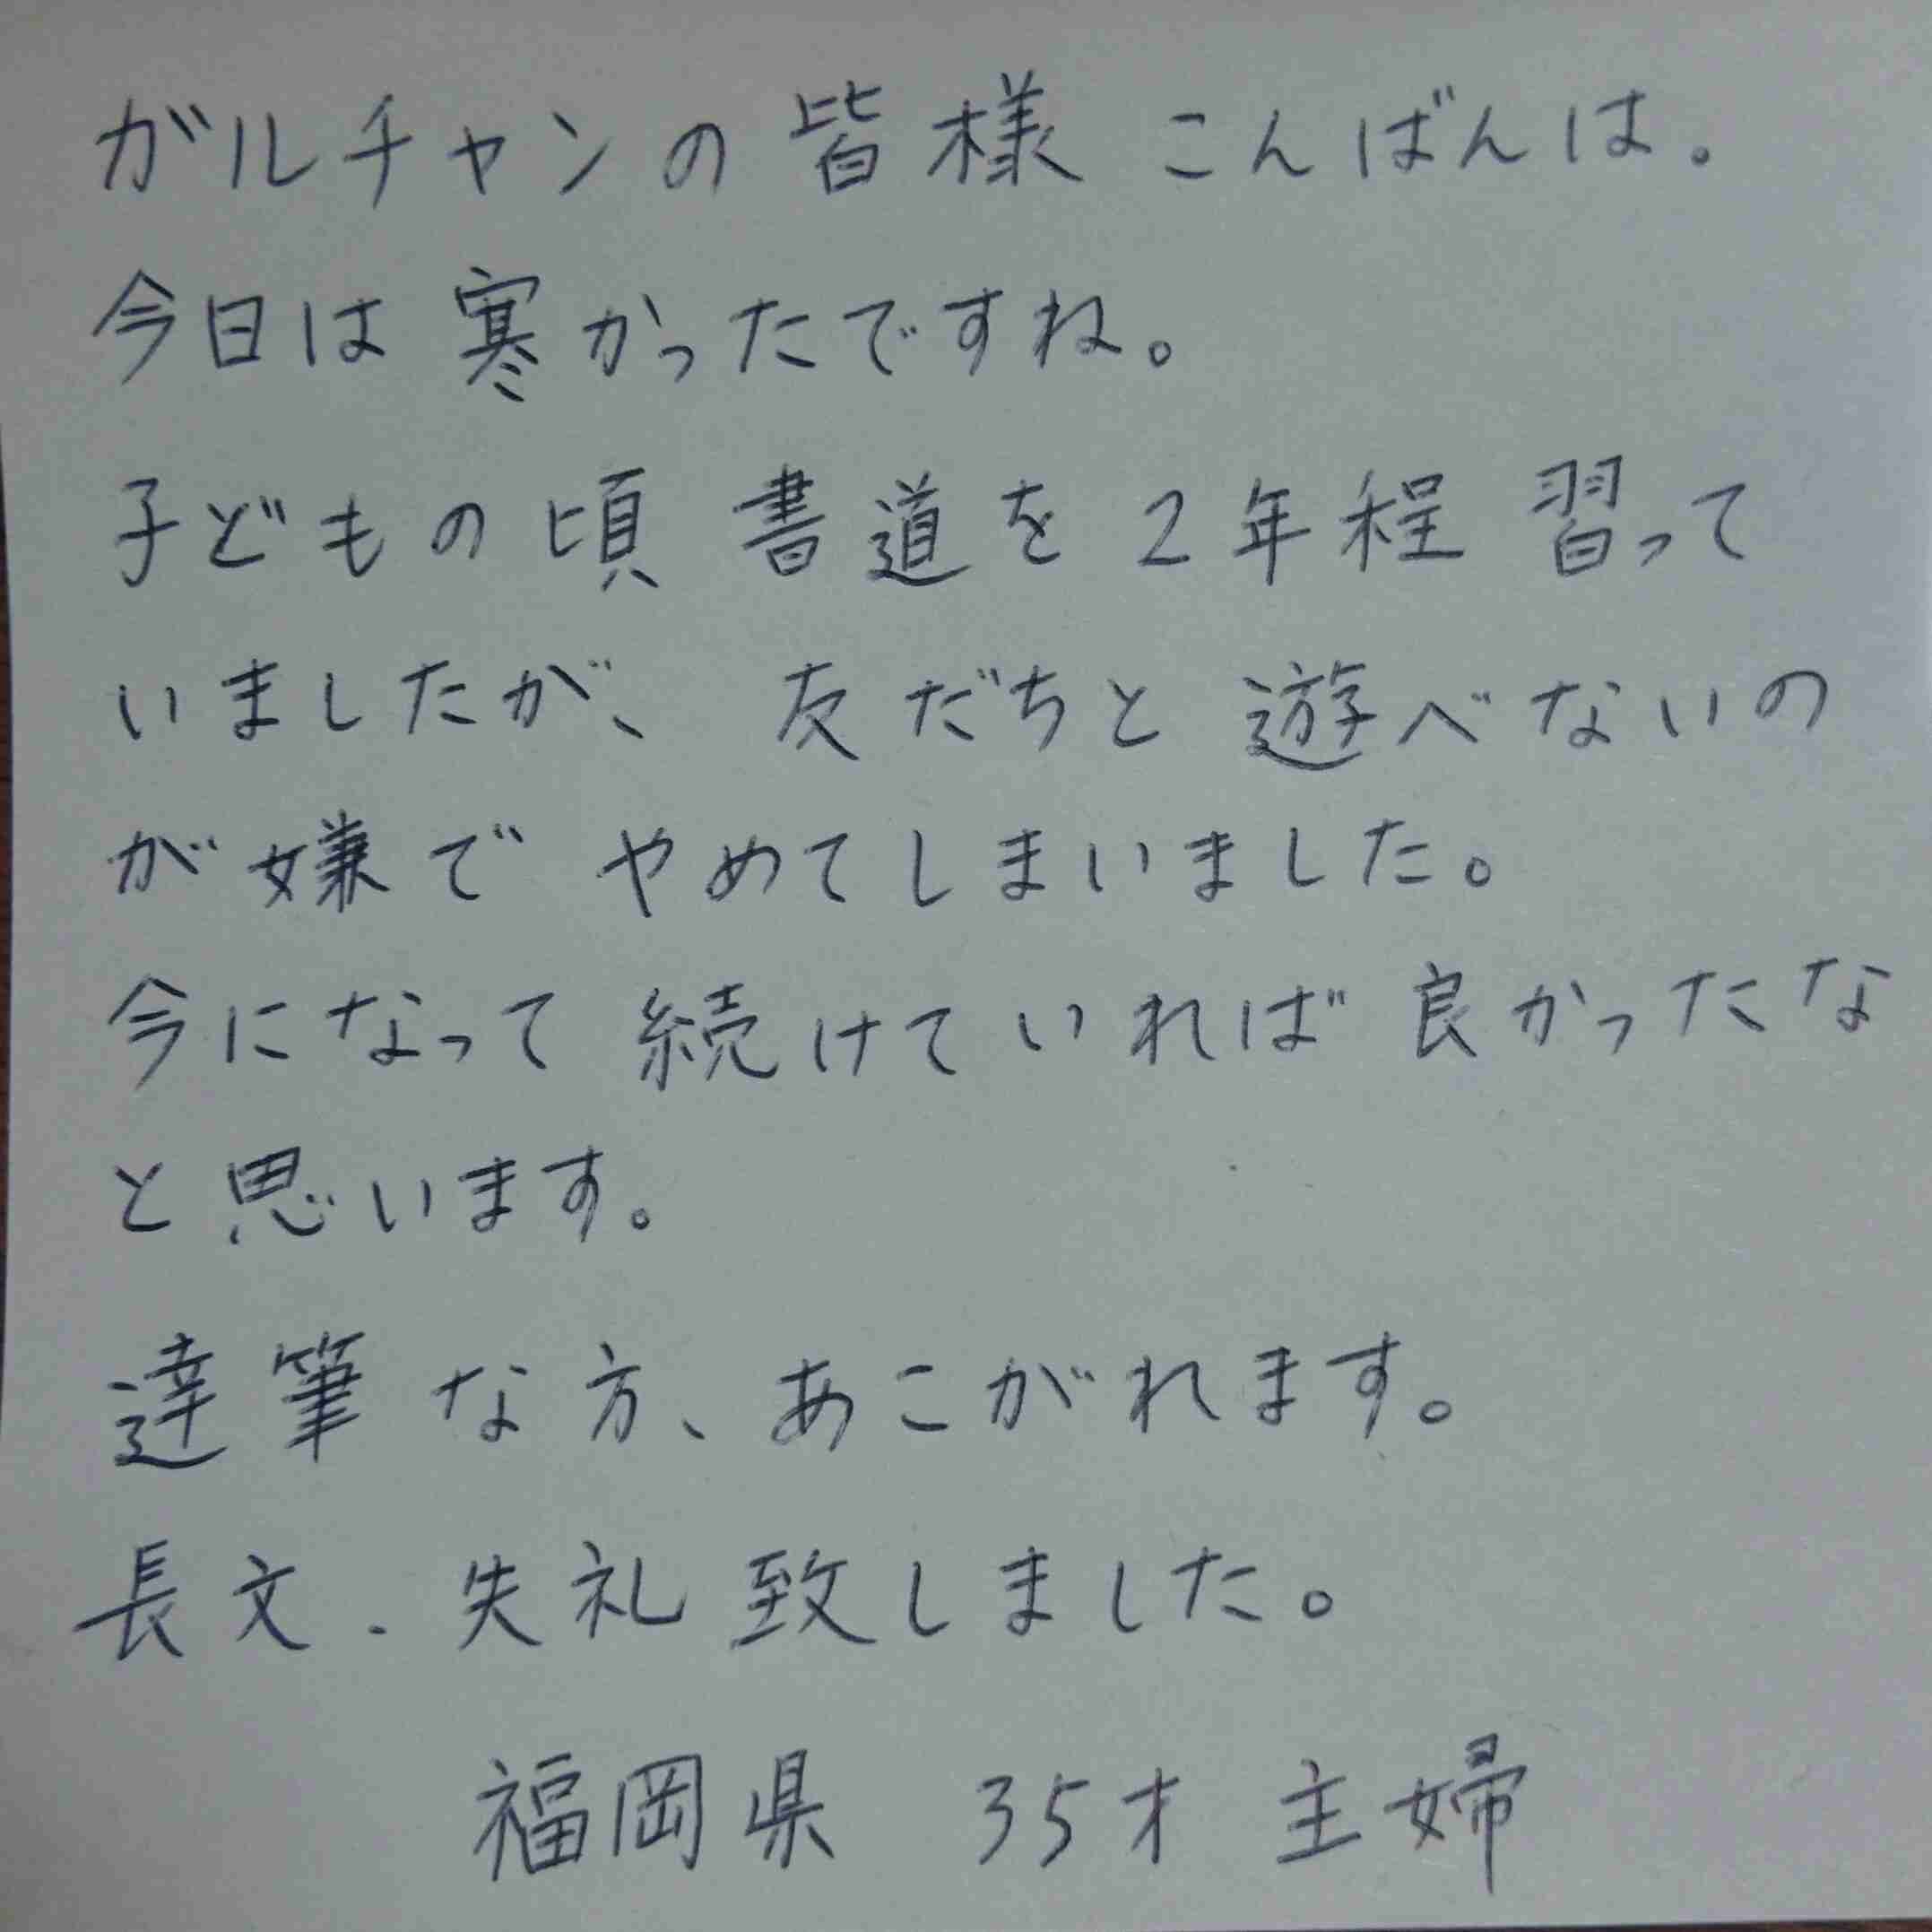 ガルチャンの皆様 こんばんは。
今日は寒かったですね。
子どもの頃 書道を2年程 習って
いましたが、 友だちと遊べないの
が嫌で やめてしまいました。
今になって続けていれば良かったな
と思います。
達筆な方、あこがれます。
長文、失礼致しました。
福岡県 35才 主婦